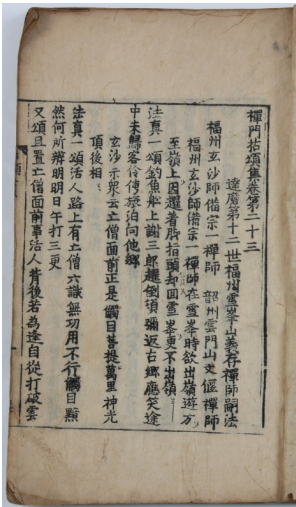 禪門拈頌集卷第二十三
達磨第十二世福州雪峯山義存禪師嗣法
福州玄沙師俻宗一禪師 韶州雲門山文偃禪師
福州玄沙師俻宗一禪師在雪峯時欲出嶺遊方
至嶺上因䟴著脚指頭却回雪峯更不出嶺
法真一頌釣魚舡上謝三郎䟴倒須彌返古鄉應笑途
中未歸客伶俜旅泊向他鄉
玄沙示衆云亡僧面前正是觸目菩提萬里神光
頂後相
法真一頌活人路上有亡僧六識無功用不行觸目顯
然何所辨明明日午打三更
又頌且置亡僧面前事活人背後若為逢自從打破雲